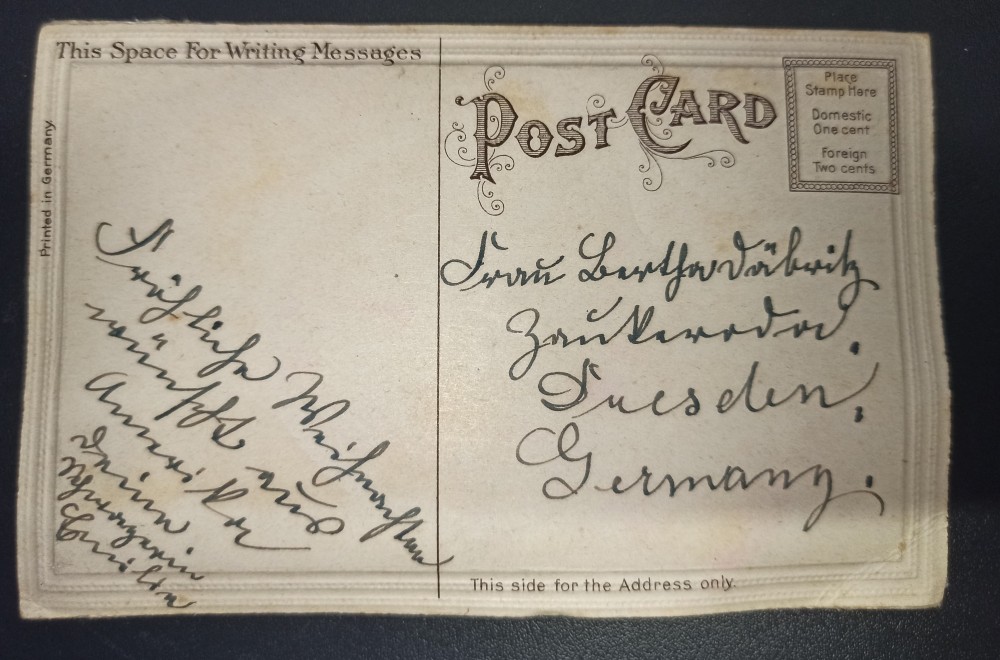 This Space For Writing Messages
Printed in Germany.
POST CARD
Place
Stamp Here
Domestic
One cent
Foreign
Two cents
Fröhliche Weihnachten
wünscht aus
Amerika
Deine
Schwägerin
Frau Bertha Däbritz
Zaukeroda.
Dresden,
Germany.
This side for the Address only.